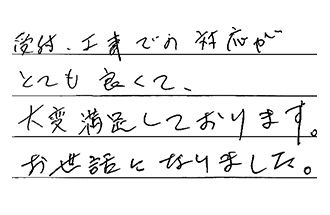 受付、工事での対応が
とても良くて、
大変満足しております。
お世話になりました。